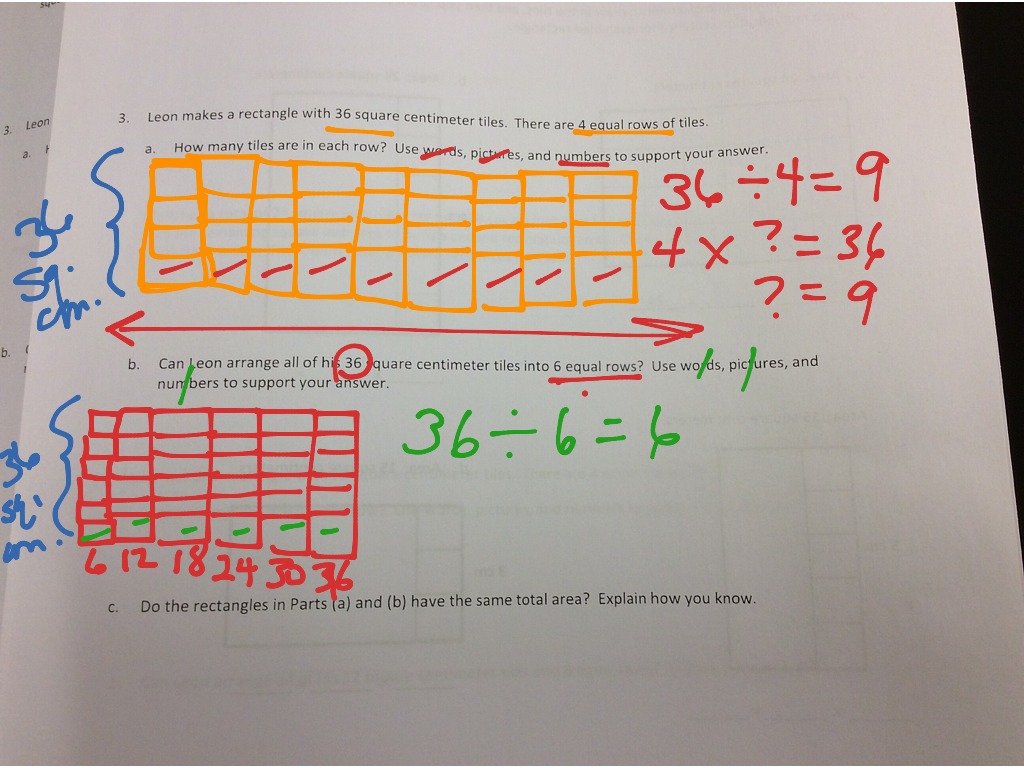 squ
3. Leon makes a rectangle with 36 square centimeter tiles. There are 4 equal rows of tiles.
3. Leon
a. How many tiles are in each row? Use words, pictures, and numbers to support your answer.
a.
36 ÷ 4 = 9
36
sq.
cm.
4 x ? = 36
? = 9
b. Can Leon arrange all of his 36 square centimeter tiles into 6 equal rows? Use words, pictures, and
numbers to support your answer.
b.
36 ÷ 6 = 6
36
sq.
cm.
6 12 18 24 30 36
c. Do the rectangles in Parts (a) and (b) have the same total area? Explain how you know.